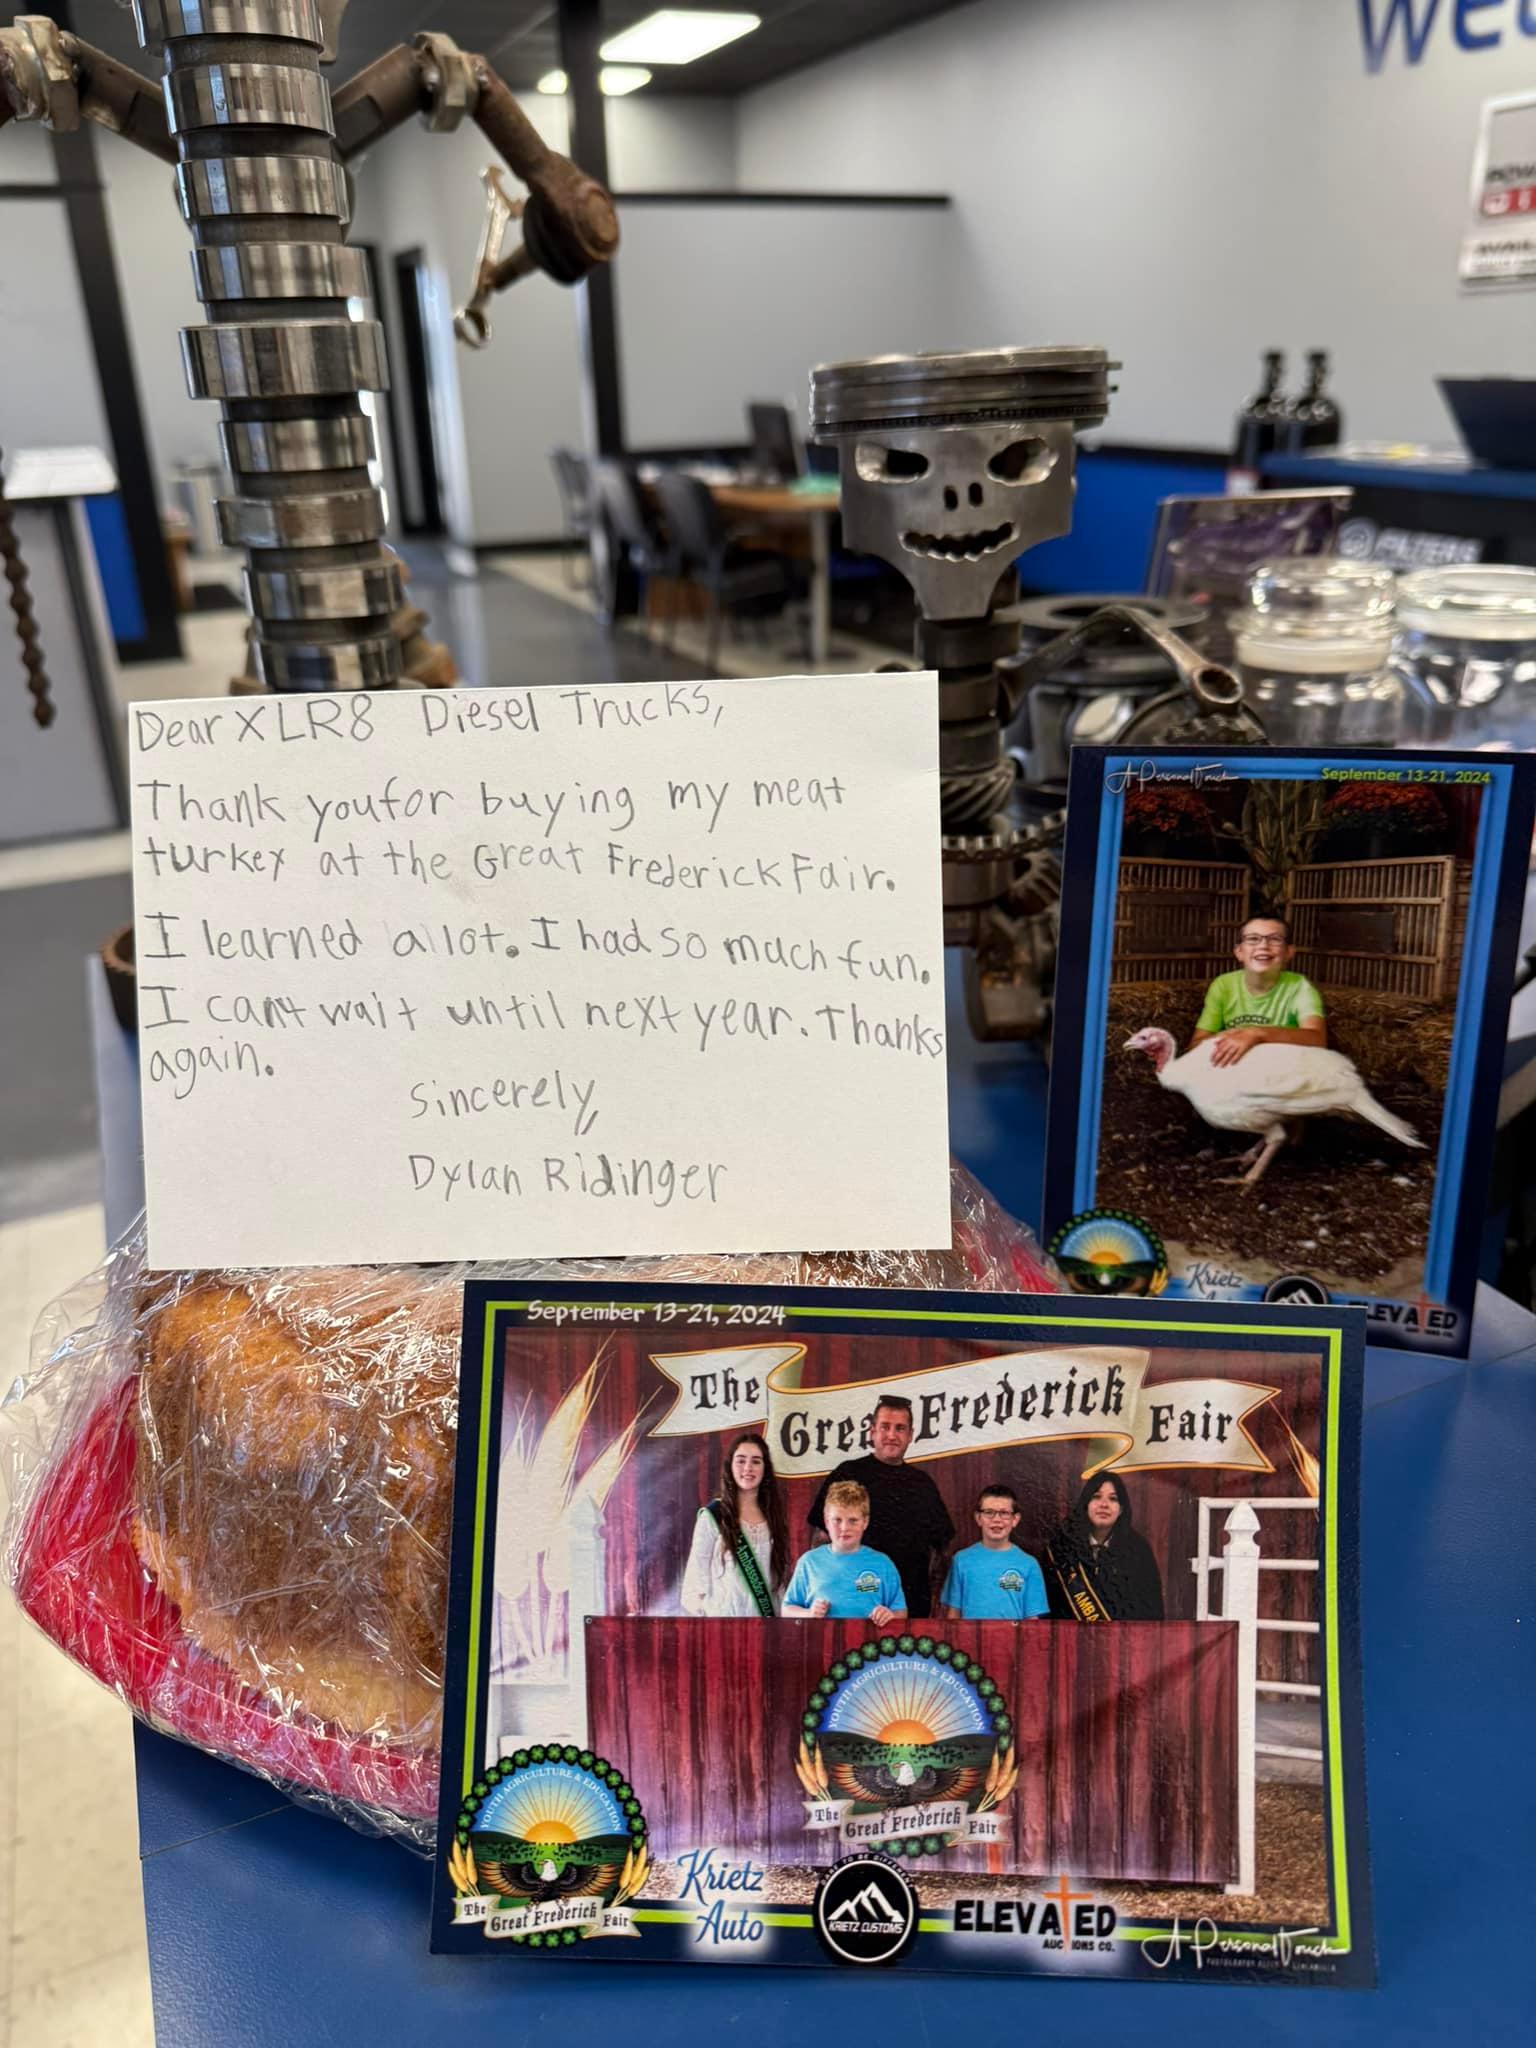 We
Dear XLR8 Diesel Trucks,
Thank youfor buying my meat
turkey at the Great Frederick Fair.
I learned a lot. I had so much fun.
I can't wait until next year. Thanks
again.
Sincerely,
Dylan Ridinger
A Personal Touch
September 13-21, 2024
Krietz
ELEVATED
September 13-21, 2024
The Great Frederick Fair
Ambassador
AMBA
YOUTH AGRICULTURE & EDUCATION
The Great Frederick Fair
YOUTH AGRICULTURE & EDUCATION
The Great Frederick Fair
Krietz
Auto
KRIETZ CUSTOMS
ELEVATED
AUCTIONS CO.
A Personal Touch
FILTERS